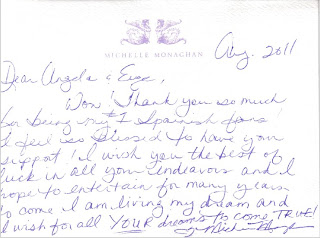 MICHELLE MONAGHAN
Aug. 2011
Dear Angela &
Wow! Thank you so much
for being my #1 Spanish fans!
I feel so blessed to have your
support! I wish you the best of
luck in all your endeavors and I
hope to entertain for many years
to come. I am living my dream and
I wish for all YOUR dreams to come TRUE!